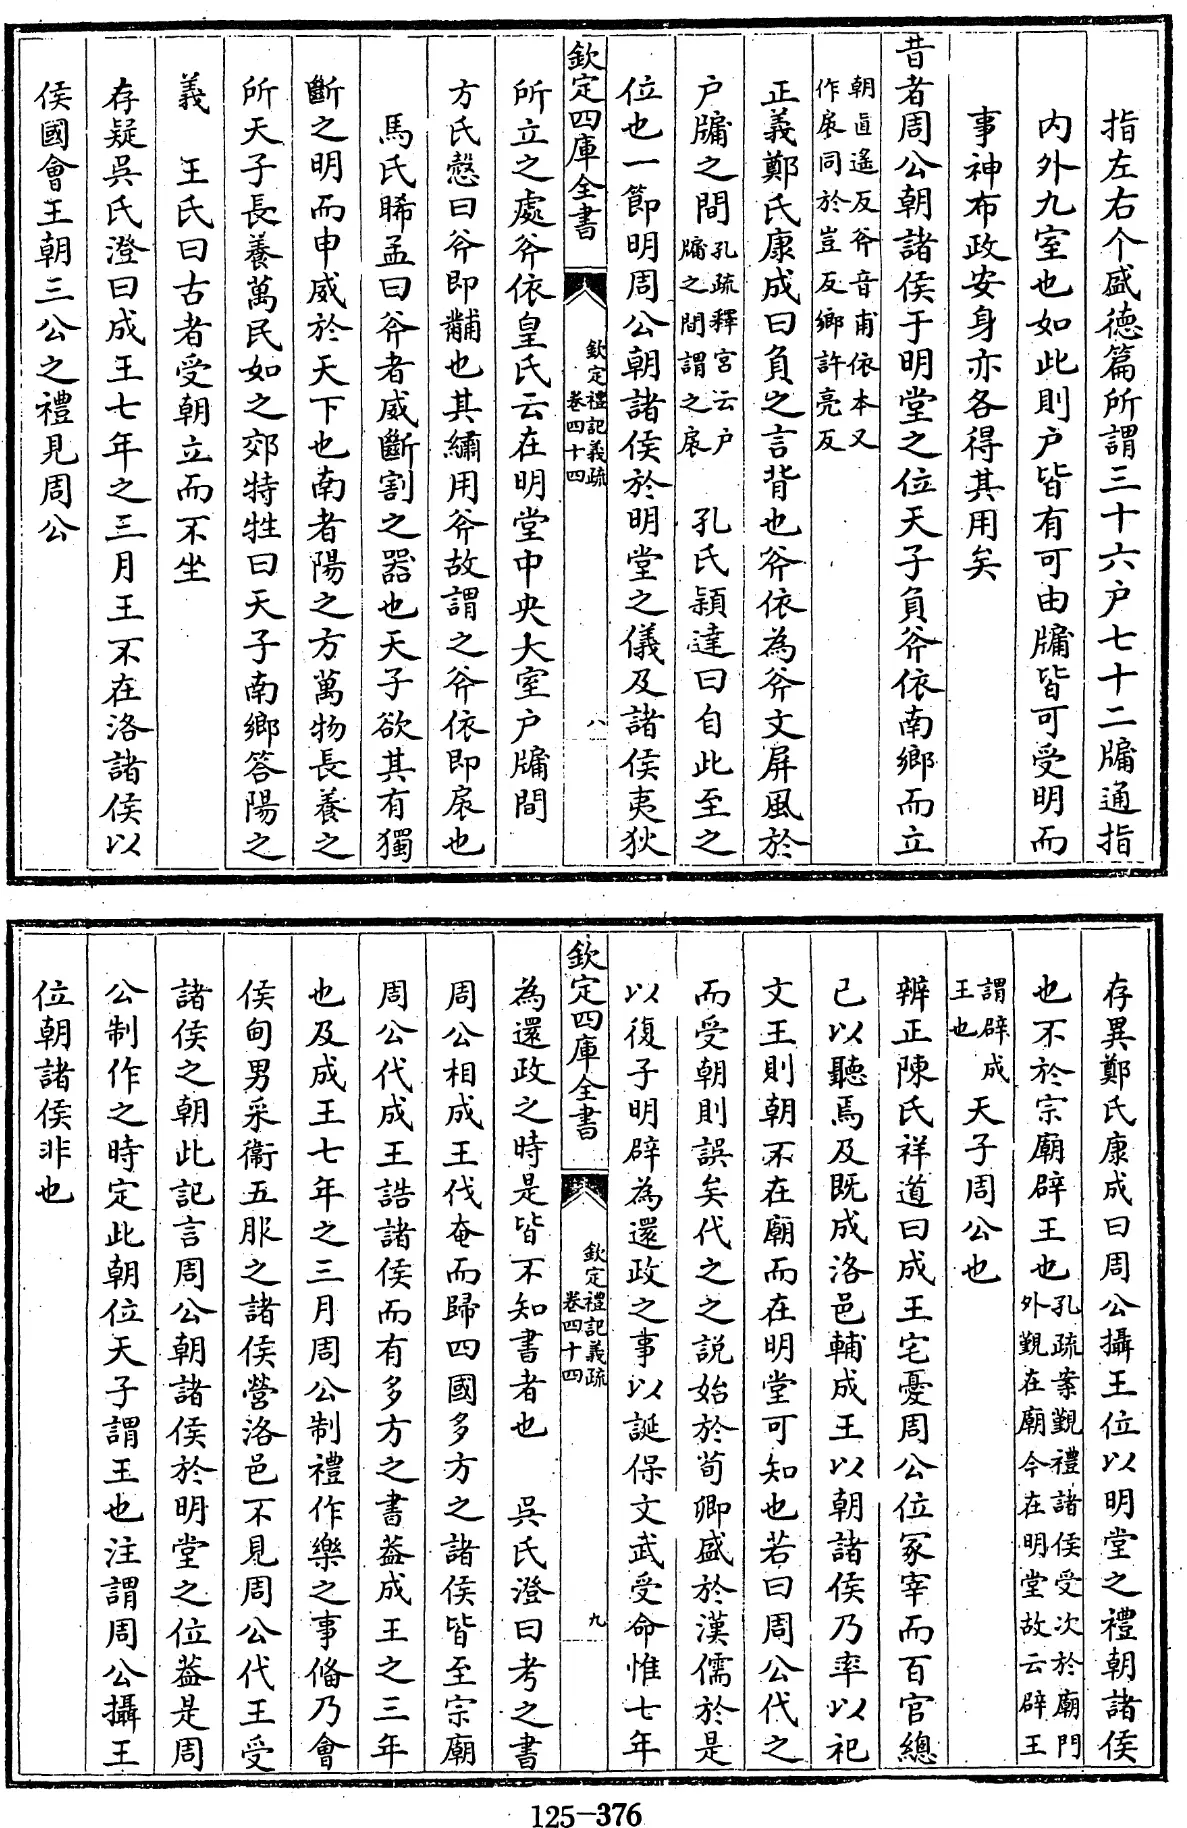 指左右个盛德篇所謂三十六户七十二牖通指
内外九室也如此則户皆有可由牖皆可受明而
事神布政安身亦各得其用矣
昔者周公朝諸侯于明堂之位天子負斧依南鄉而立
朝直遙反斧音甫依本又
作扆同於豈反鄉許亮反
正義鄭氏康成曰負之言背也斧依為斧文屏風於
户牖之間孔疏釋宫云户牖之間謂之扆 孔氏穎達曰自此至之
位也一節明周公朝諸侯於明堂之儀及諸侯夷狄
欽定四庫全書 欽定禮記義疏 卷四十四 八
所立之處斧依皇氏云在明堂中央大室户牖間
方氏慤曰斧即黼也其繡用斧故謂之斧依即扆也
馬氏晞孟曰斧者威斷割之器也天子欲其有獨
斷之明而申威於天下也南者陽之方萬物長養之
所天子長養萬民如之郊特牲曰天子南鄉答陽之
義 王氏曰古者受朝立而不坐
存疑吳氏澄曰成王七年之三月王不在洛諸侯以
侯國會王朝三公之禮見周公
存異鄭氏康成曰周公攝王位以明堂之禮朝諸侯
也不於宗廟辟王也孔疏案覲禮諸侯受次於廟門外覲在廟今在明堂故云辟王
謂辟成王也 天子周公也
辨正陳氏祥道曰成王宅憂周公位冢宰而百官總
已以聽焉及既成洛邑輔成王以朝諸侯乃率以祀
文王則朝不在廟而在明堂可知也若曰周公代之
而受朝則誤矣代之之説始於荀卿盛於漢儒於是
以復子明辟為還政之事以誕保文武受命惟七年
欽定四庫全書 欽定禮記義疏 卷四十四 九
為還政之時是皆不知書者也 吳氏澄曰考之書
周公相成王伐奄而歸四國多方之諸侯皆至宗廟
周公代成王誥諸侯而有多方之書蓋成王之三年
也及成王七年之三月周公制禮作樂之事俻乃會
侯甸男采衛五服之諸侯營洛邑不見周公代王受
諸侯之朝此記言周公朝諸侯於明堂之位蓋是周
公制作之時定此朝位天子謂王也注謂周公攝王
位朝諸侯非也
125-376